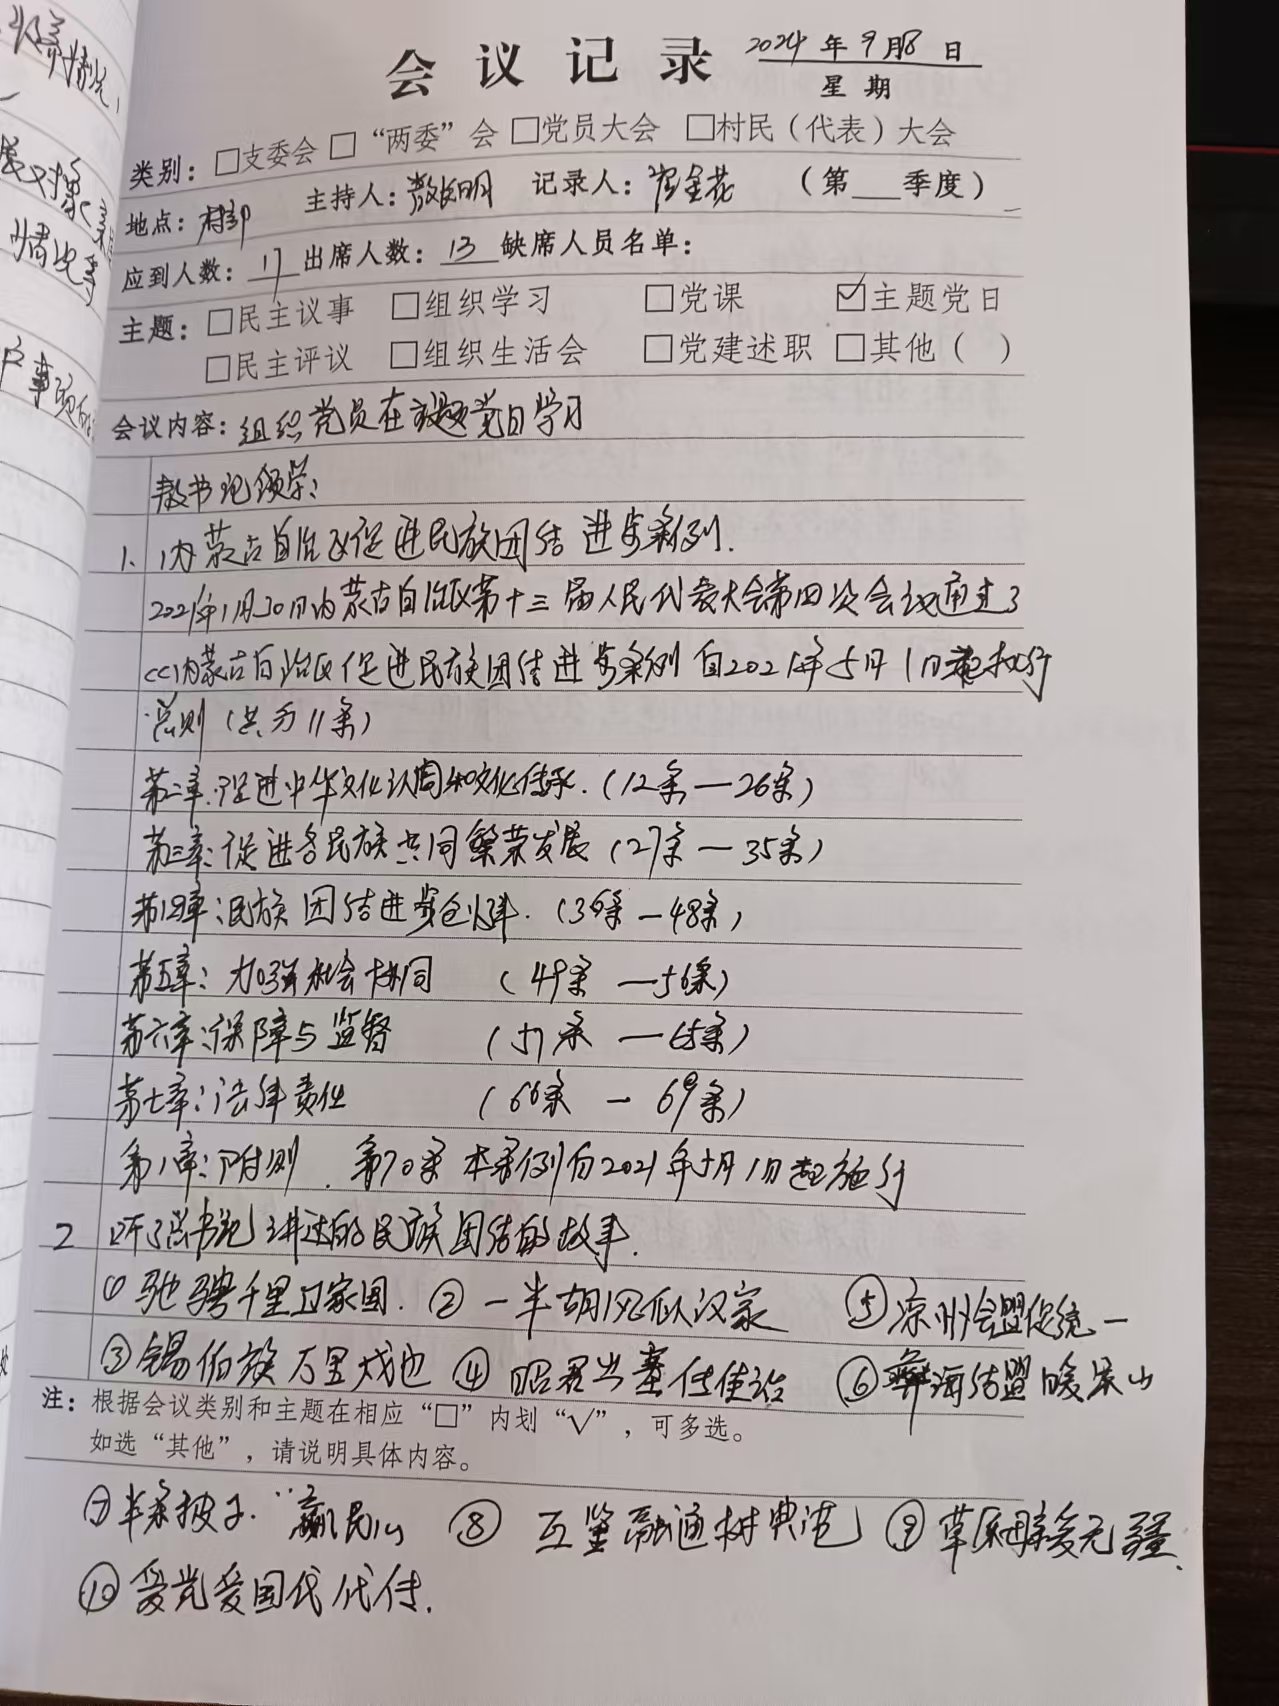 会议记录 2024年9月8日
星期
类别：□支委会 □“两委”会 □党员大会 □村民（代表）大会
地点：村部 主持人：敖长明 记录人：崔金花 （第___季度）
应到人数：17 出席人数：13 缺席人员名单：
主题：□民主议事 □组织学习 □党课 ☑主题党日
□民主评议 □组织生活会 □党建述职 □其他（ ）
会议内容：组织党员在主题党日学习
敖书记领学：
1. 内蒙古自治区促进民族团结进步条例.
2021年1月30日内蒙古自治区第十三届人民代表大会第四次会议通过了
<<内蒙古自治区促进民族团结进步条例 自2021年5月1日起执行
总则（共分11条）
第二章：促进中华文化认同和文化传承.（12条—26条）
第三章：促进各民族共同繁荣发展（27条—35条）
第四章：民族团结进步创建.（36条—48条）
第五章：加强社会协同 （49条—56条）
第六章：保障与监督 （57条—65条）
第七章：法律责任 （66条—69条）
第八章：附则. 第70条 本条例自2021年5月1日起施行
2 听了总书记讲述的民族团结的故事.
① 驰骋千里卫家国. ② 一半胡风似汉家 ⑤ 凉州会盟促统一
③ 锡伯族万里戍边 ④ 昭君出塞传佳话 ⑥ 彝海结盟暖凉山
注：根据会议类别和主题在相应“□”内划“√”，可多选。
如选“其他”，请说明具体内容。
⑦ 半条被子. 赢民心 ⑧ 互鉴融通树典范 ⑨ 草原母亲爱无疆.
⑩ 爱党爱国代代传.